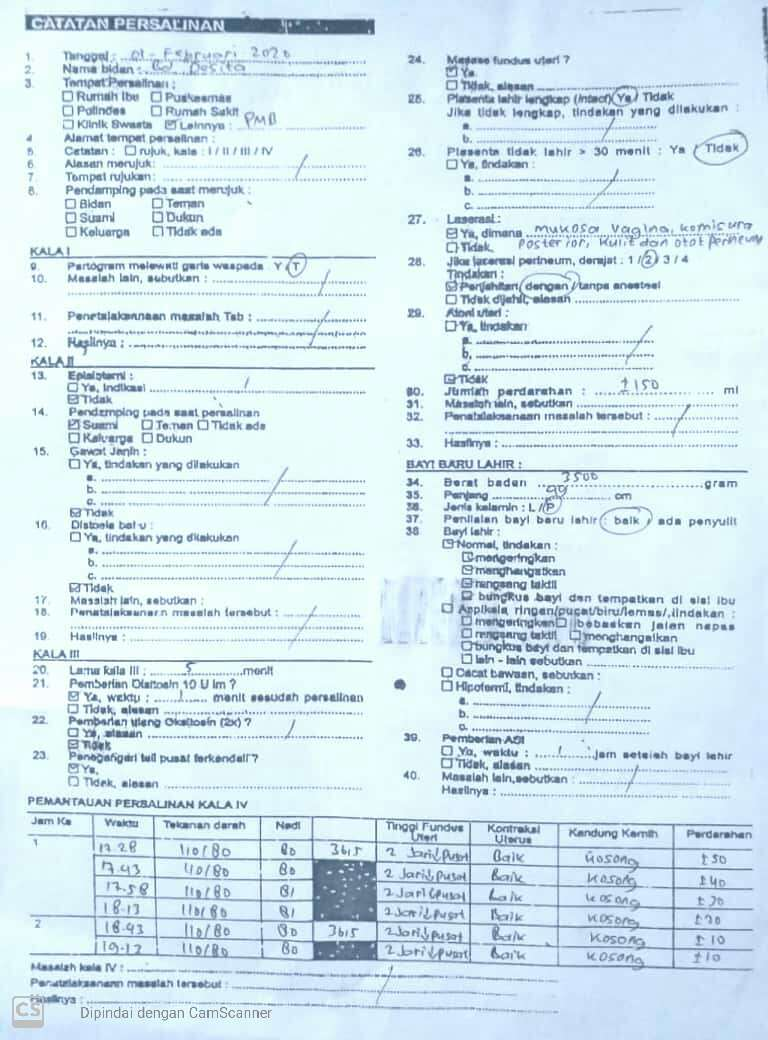 CATATAN PERSALINAN
1. Tanggal : 01 - Februari 2020
2. Nama bidan : Bd Desita
3. Tempat Persalinan :
Rumah Ibu Puskesmas
Polindes Rumah Sakit
Klinik Swasta Lainnya : PMB
4. Alamat tempat persalinan :
5. Catatan : rujuk, kala : I / II / III / IV
6. Alasan merujuk:
7. Tempat rujukan :
8. Pendamping pada saat merujuk :
Bidan Teman
Suami Dukun
Keluarga Tidak ada
KALA I
9. Partogram melewati garis waspada Y / T
10. Masalah lain, sebutkan :
11. Penatalaksanaan masalah Tsb :
12. Hasilnya :
KALA II
13. Episiotomi :
Ya, indikasi
Tidak
14. Pendamping pada saat persalinan
Suami Teman Tidak ada
Keluarga Dukun
15. Gawat Janin :
Ya, tindakan yang dilakukan
a.
b.
c.
Tidak
16. Distosia bahu :
Ya, tindakan yang dilakukan
a.
b.
c.
Tidak
17. Masalah lain, sebutkan :
18. Penatalaksanaan masalah tersebut :
19. Hasilnya :
KALA III
20. Lama kala III : 5 menit
21. Pemberian Oksitosin 10 U im ?
Ya, waktu : 1 menit sesudah persalinan
Tidak, alasan
22. Pemberian ulang Oksitosin (2x) ?
Ya, alasan
Tidak
23. Penegangan tali pusat terkendali ?
Ya,
Tidak, alasan
24. Masase fundus uteri ?
Ya.
Tidak, alasan
25. Plasenta lahir lengkap (intact) Ya / Tidak
Jika tidak lengkap, tindakan yang dilakukan :
a.
b.
26. Plasenta tidak lahir > 30 menit : Ya / Tidak
Ya, tindakan :
a.
b.
c.
27. Laserasi :
Ya, dimana mukosa vagina, komisura
Tidak, posterior, kulit dan otot perineum
28. Jika laserasi perineum, derajat : 1 / 2 / 3 / 4
Tindakan :
Penjahitan, dengan / tanpa anestesi
Tidak dijahit, alasan
29. Atoni uteri :
Ya, tindakan
a.
b.
c.
Tidak
30. Jumlah perdarahan : ± 150 ml
31. Masalah lain, sebutkan
32. Penatalaksanaan masalah tersebut :
33. Hasilnya :
BAYI BARU LAHIR :
34. Berat badan 3500 gram
35. Panjang 49 cm
36. Jenis kelamin : L / P
37. Penilaian bayi baru lahir : baik / ada penyulit
38 Bayi lahir :
Normal, tindakan :
mengeringkan
menghangatkan
rangsang taktil
bungkus bayi dan tempatkan di sisi ibu
Aspiksia ringan/pucat/biru/lemas/,tindakan :
mengeringkan bebaskan jalan napas
rangsang taktil menghangatkan
bungkus bayi dan tempatkan di sisi ibu
lain - lain sebutkan
Cacat bawaan, sebutkan :
Hipotermi, tindakan :
a.
b.
c.
39. Pemberian ASI
Ya, waktu : 1 jam setelah bayi lahir
Tidak, alasan
40. Masalah lain,sebutkan :
Hasilnya :
PEMANTAUAN PERSALINAN KALA IV
Jam Ke Waktu Tekanan darah Nadi Tinggi Fundus Uteri Kontraksi Uterus Kandung Kemih Perdarahan
1 17.28 110/80 80 36,5 2 Jari↓pusat Baik Kosong ± 50
17.43 110/80 80 2 Jari↓pusat Baik Kosong ± 40
17.58 110/80 81 2 Jari↓pusat Baik Kosong ± 30
18.13 110/80 81 2 Jari↓pusat Baik Kosong ± 20
2 18.43 110/80 80 36,5 2 Jari↓pusat Baik Kosong ± 10
19.13 110/80 80 2 Jari↓pusat Baik Kosong ± 10
Masalah kala IV :
Penatalaksanaan masalah tersebut :
Hasilnya :
CS Dipindai dengan CamScanner